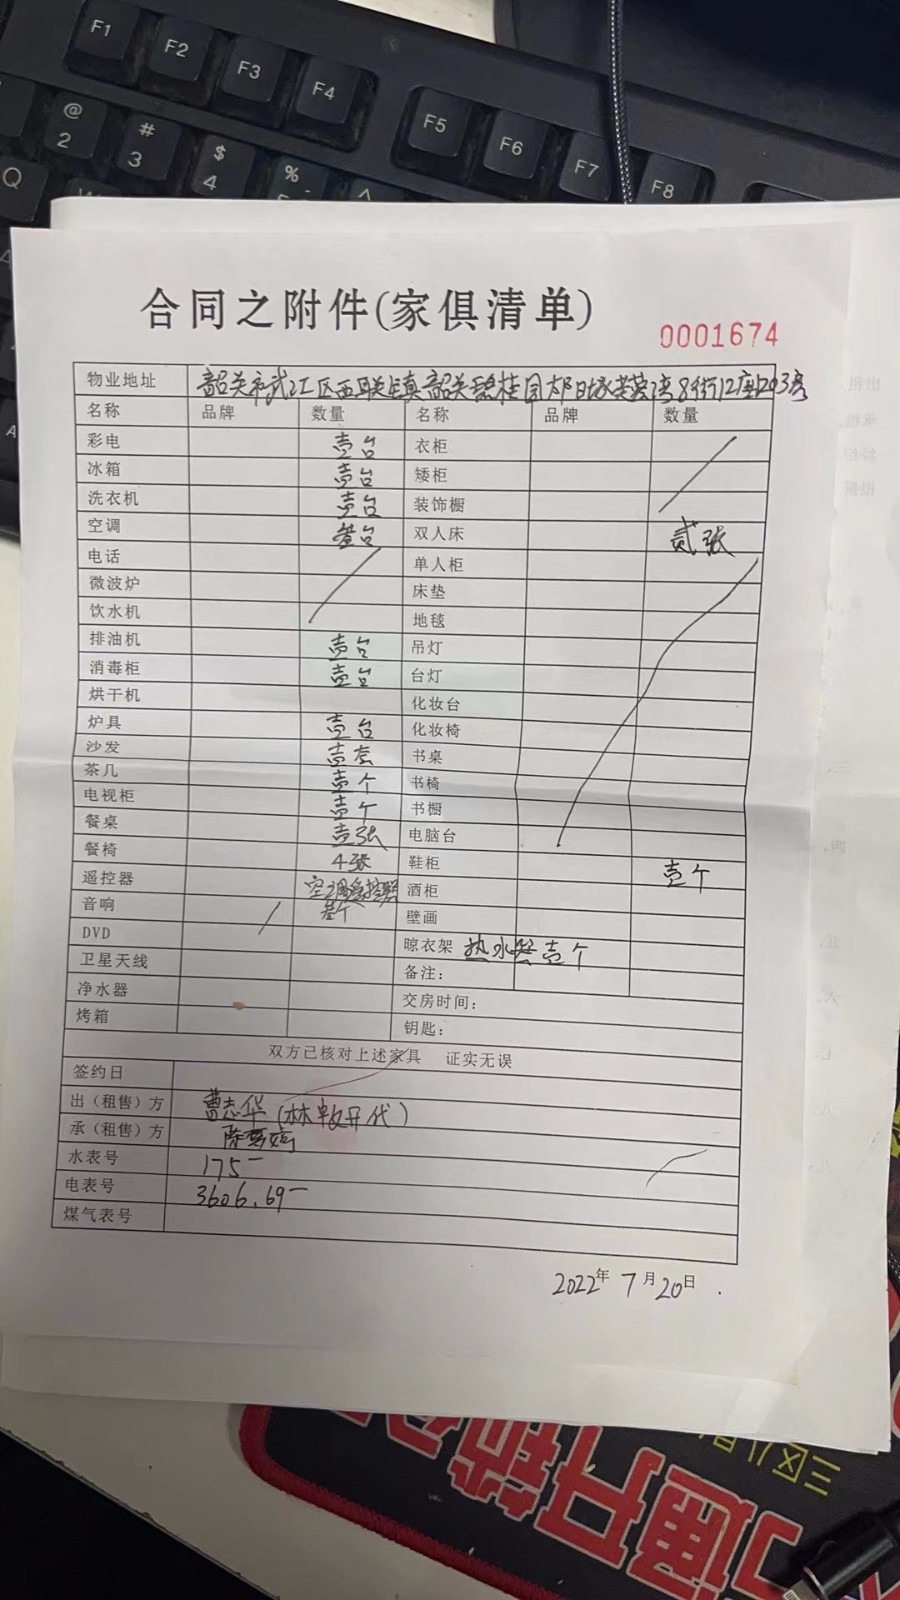 F1 F2 F3 F4 F5 F6 F7 F8
@ 2 # 3 $ 4 %
Q
合同之附件(家俱清单)
0001674
物业地址 韶关市武江区西联镇韶关碧桂园太阳城芙蓉湾8街12座1203房
名称 品牌 数量 名称 品牌 数量
彩电 壹台 衣柜
冰箱 壹台 矮柜
洗衣机 壹台 装饰橱
空调 叁台 双人床 贰张
电话 单人柜
微波炉 床垫
饮水机 地毯
排油机 壹台 吊灯
消毒柜 壹台 台灯
烘干机 化妆台
炉具 壹台 化妆椅
沙发 壹套 书桌
茶几 壹个 书椅
电视柜 壹个 书橱
餐桌 壹张 电脑台
餐椅 4张 鞋柜 壹个
遥控器 空调遥控器叁个 酒柜
音响 壁画
DVD 晾衣架 热水器壹个
卫星天线 备注:
净水器 交房时间:
烤箱 钥匙:
双方已核对上述家具 证实无误
签约日
出（租售）方 曹志华(林敏开代)
承（租售）方
水表号 175
电表号 3606.69
煤气表号
2022年7月20日